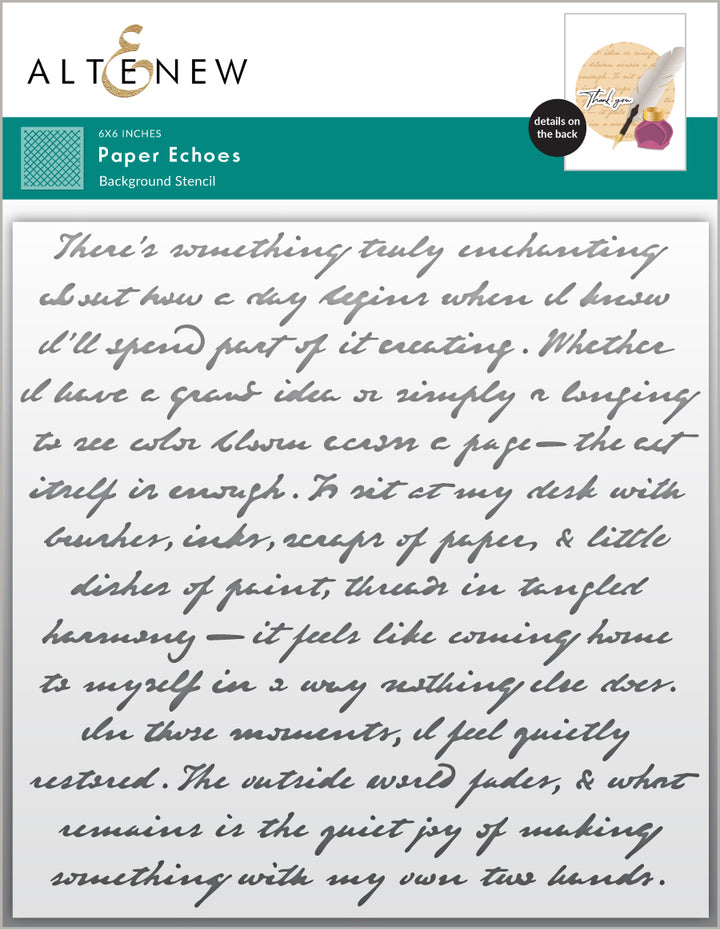 ALTENEW
6X6 INCHES
Paper Echoes
Background Stencil
Thank you
details on
the back
There's something truly enchanting
about how a day begins when I know
I'll spend part of it creating. Whether
I have a grand idea or simply a longing
to see color bloom across a page—the act
itself is enough. To sit at my desk with
brushes, inks, scraps of paper, & little
dishes of paint, threads in tangled
harmony—it feels like coming home
to myself in a way nothing else does.
In those moments, I feel quietly
restored. The outside world fades, & what
remains is the quiet joy of making
something with my own two hands.